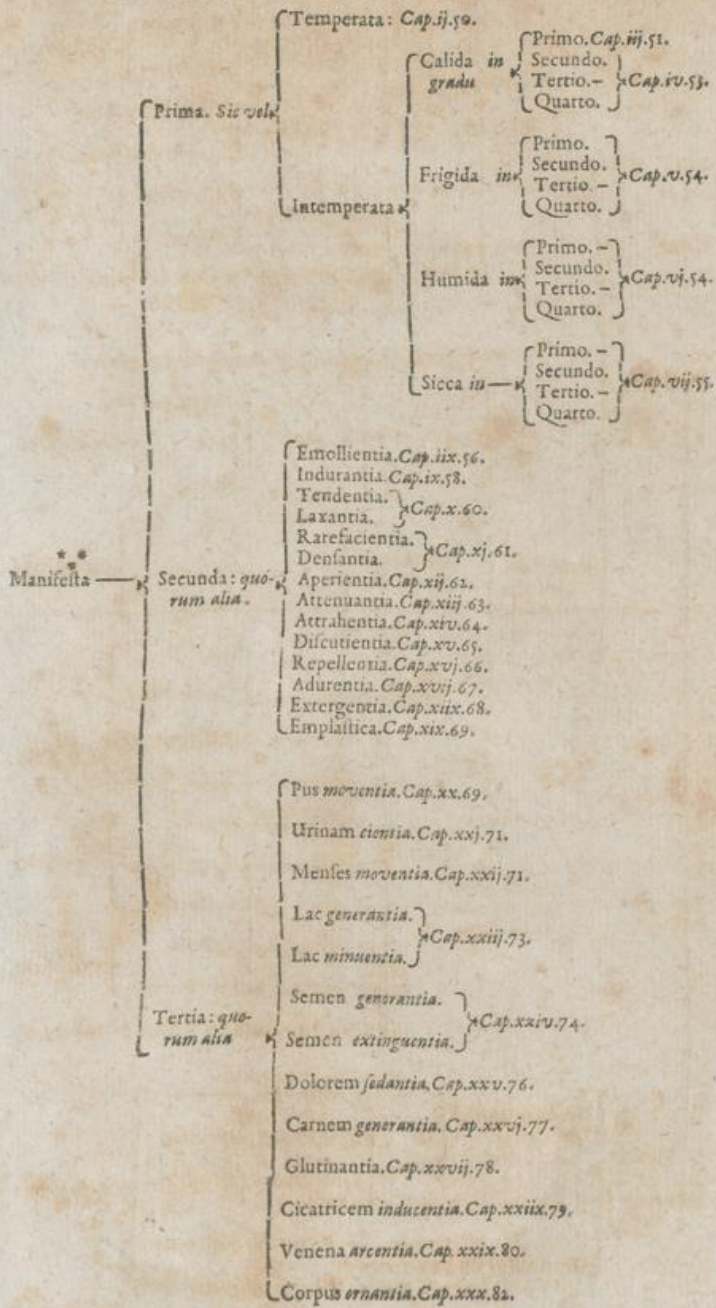 Temperata: Cap.ij.50.
Calida in gradu
Primo. Cap.iij.51.
Secundo.
Tertio.–
Quarto.
Cap.iv.53.
Prima. Sic vel
Intemperata
Frigida in
Primo.
Secundo.
Tertio.–
Quarto.
Cap.v.54.
Humida in
Primo.–
Secundo.
Tertio.–
Quarto.
Cap.vj.54.
Sicca in
Primo.–
Secundo.
Tertio.–
Quarto.
Cap.vij.55.
** *
Manifesta
Secunda: quo-
rum alia.
Emollientia. Cap.iix.56.
Indurantia. Cap.ix.58.
Tendentia.
Laxantia.
Cap.x.60.
Rarefacientia.
Densantia.
Cap.xj.61.
Aperientia. Cap.xij.62.
Attenuantia. Cap.xiij.63.
Attrahentia. Cap.xiv.64.
Discutientia. Cap.xv.65.
Repellentia. Cap.xvj.66.
Adurentia. Cap.xvij.67.
Extergentia. Cap.xiix.68.
Emplastica. Cap.xix.69.
Tertia: quo-
rum alia
Pus moventia. Cap.xx.69.
Urinam cientia. Cap.xxj.71.
Menses moventia. Cap.xxij.71.
Lac generantia.
Lac minuentia.
Cap.xxiij.73.
Semen generantia.
Semen extinguentia.
Cap.xxiv.74.
Dolorem sedantia. Cap.xxv.76.
Carnem generantia. Cap.xxvj.77.
Glutinantia. Cap.xxvij.78.
Cicatricem inducentia. Cap.xxiix.79.
Venena arcentia. Cap.xxix.80.
Corpus ornantia. Cap.xxx.82.